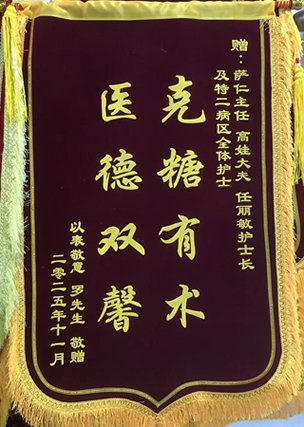 赠：萨仁主任 高娃大夫 任丽敏护士长
及特二病区全体护士
克糖有术
医德双馨
以表敬意 罗先生 敬赠
二零二五年十一月